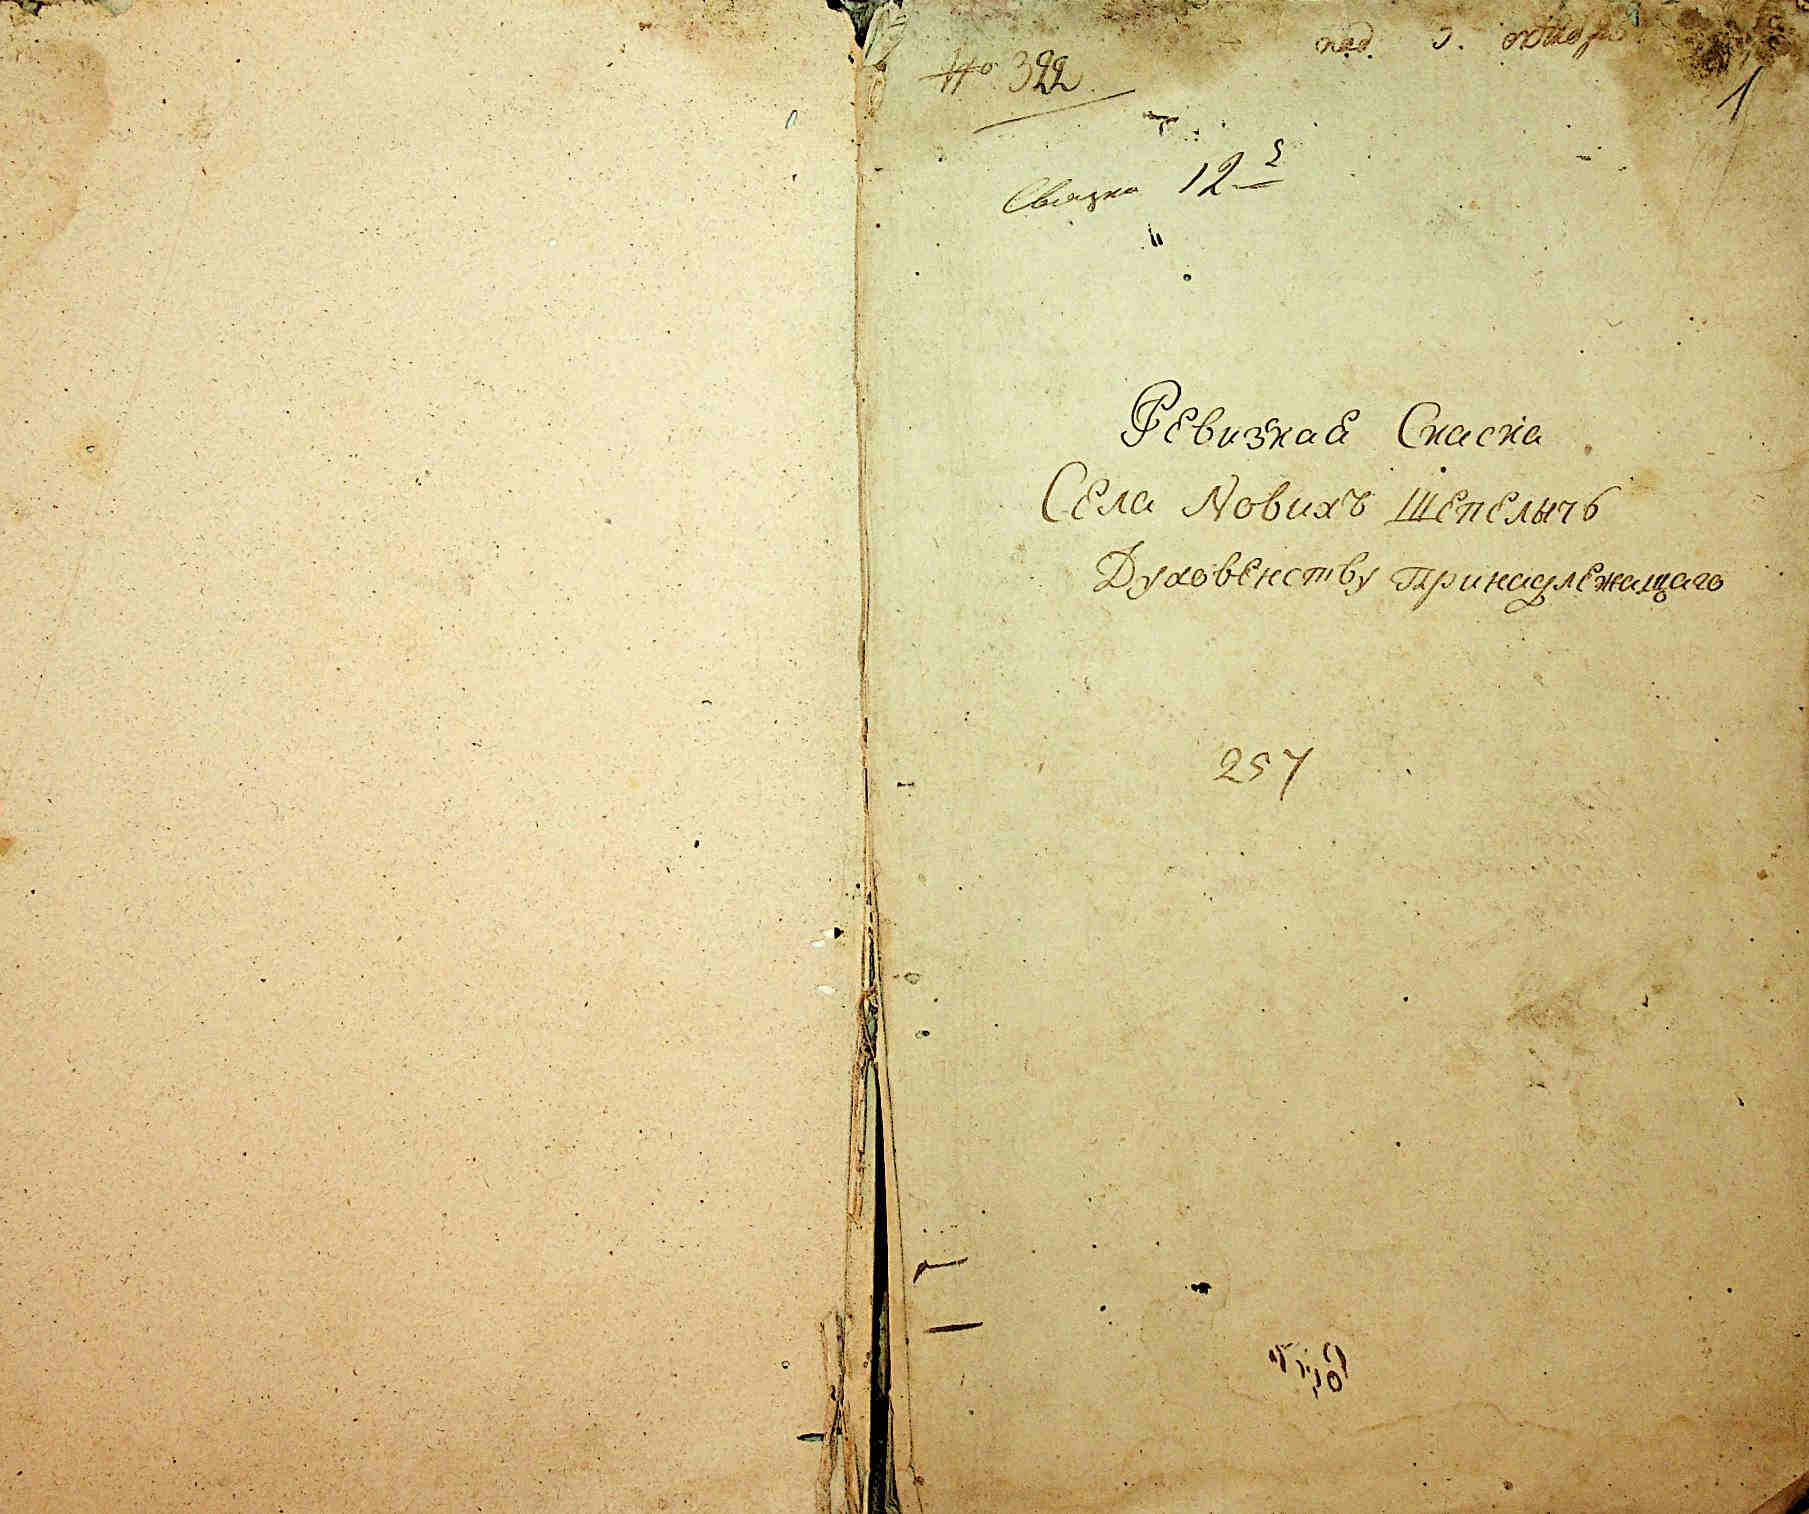 под. 5. октобра
№ 322
1
Связка 12 я
Ревизкая Скаска
Села Новихъ Шепеличъ
Духовенству принадлежащаго
257